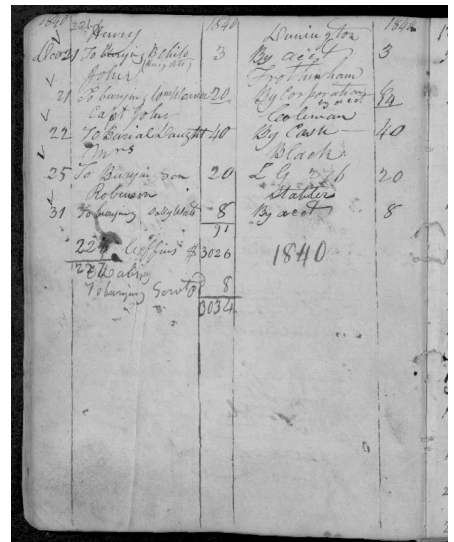 1840 1840 1840
Henry Dunington
Dec 21 To burying 3 By acct 3
John Frothinham
21 To burying 20 By Corporation
by acct 14
Capt John Coleman
22 To Burial Daught 40 By Cash 40
Mrs Black
25 To Burying Son 20 L G 20
Robinson Stabler
31 To burying Sally 8 By acct 8
91
Coffins $ 3026 1840
To burying Servt 8
3034